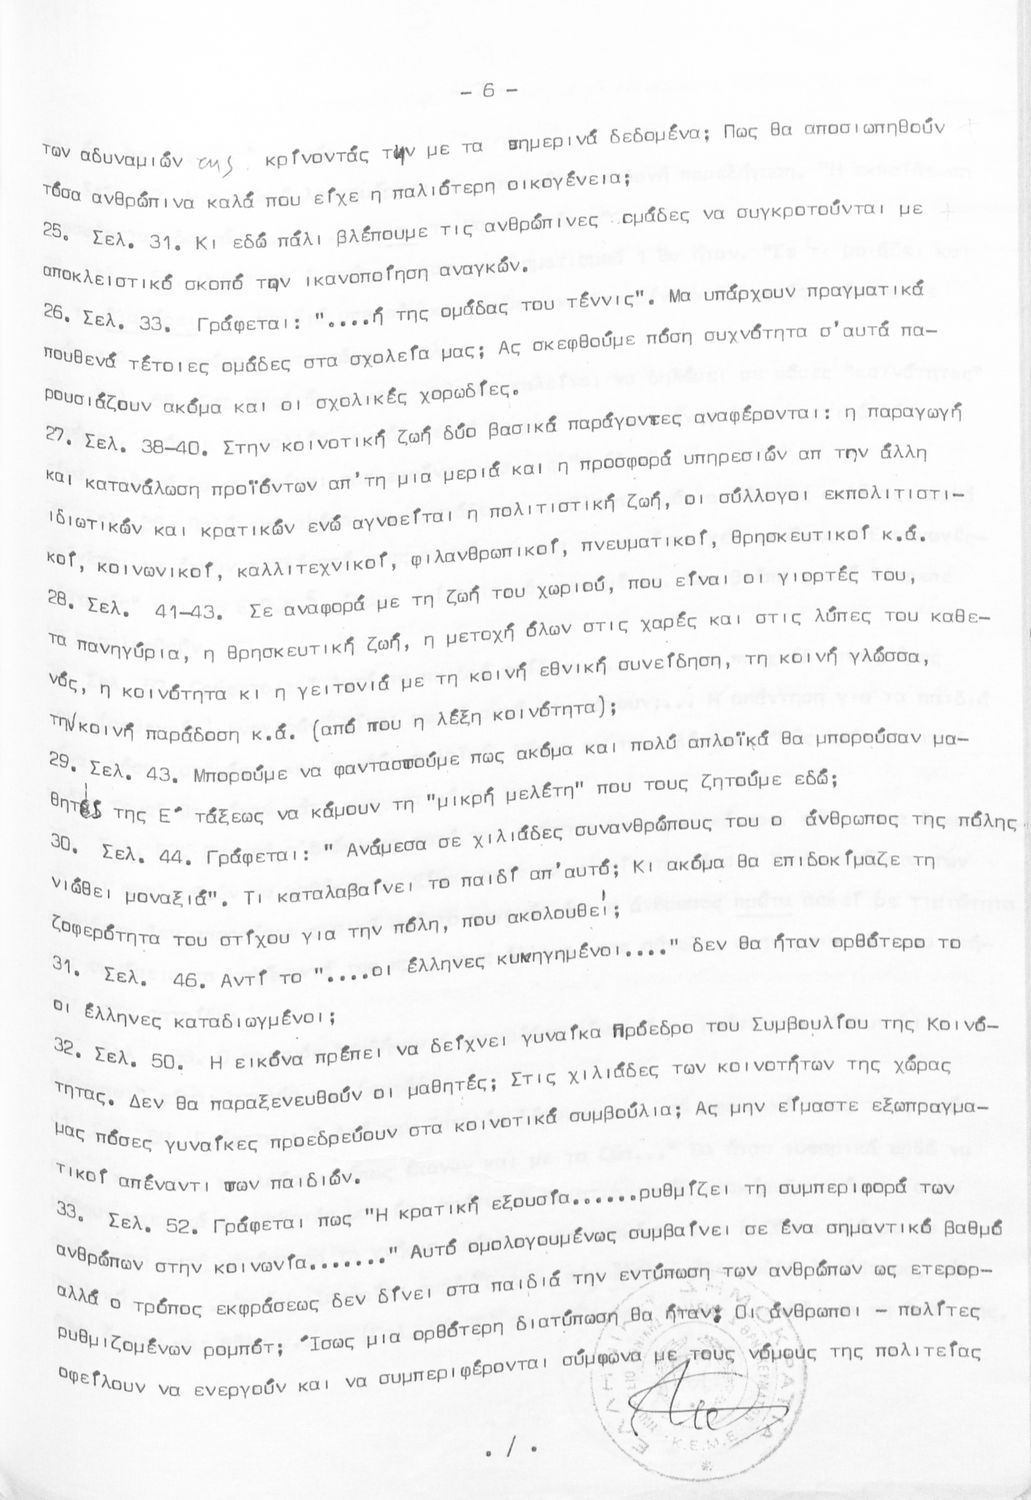 - 6 -
των αδυναμιών της κρίνοντάς την με τα σημερινά δεδομένα; Πως θα αποσιωπηθούν
τόσα ανθρώπινα καλά που είχε η παλιότερη οικογένεια;
25. Σελ. 31. Κι εδώ πάλι βλέπουμε τις ανθρώπινες ομάδες να συγκροτούνται με
αποκλειστικό σκοπό την ικανοποίηση αναγκών.
26. Σελ. 33. Γράφεται: "....ή της ομάδας του τέννις". Μα υπάρχουν πραγματικά
πουθενά τέτοιες ομάδες στα σχολεία μας; Ας σκεφθούμε πόση συχνότητα σ'αυτά πα-
ρουσιάζουν ακόμα και οι σχολικές χορωδίες.
27. Σελ. 38-40. Στην κοινοτική ζωή δύο βασικά παράγοντες αναφέρονται: η παραγωγή
και κατανάλωση προϊόντων απ'τη μια μεριά και η προσφορά υπηρεσιών απ την άλλη
ιδιωτικών και κρατικών ενώ αγνοείται η πολιτιστική ζωή, οι σύλλογοι εκπολιτιστι-
κοί, κοινωνικοί, καλλιτεχνικοί, φιλανθρωπικοί, πνευματικοί, θρησκευτικοί κ.ά.
28. Σελ. 41-43. Σε αναφορά με τη ζωή του χωριού, που είναι οι γιορτές του,
τα πανηγύρια, η θρησκευτική ζωή, η μετοχή όλων στις χαρές και στις λύπες του καθε-
νός, η κοινότητα κι η γειτονιά με τη κοινή εθνική συνείδηση, τη κοινή γλώσσα,
την κοινή παράδοση κ.ά. (από που η λέξη κοινότητα);
29. Σελ. 43. Μπορούμε να φανταστούμε πως ακόμα και πολύ απλοϊκά θα μπορούσαν μα-
θητές της Ε΄ τάξεως να κάμουν τη "μικρή μελέτη" που τους ζητούμε εδώ;
30. Σελ. 44. Γράφεται: " Ανάμεσα σε χιλιάδες συνανθρώπους του ο άνθρωπος της πόλης
νιώθει μοναξιά". Τι καταλαβαίνει το παιδί απ'αυτό; Κι ακόμα θα επιδοκίμαζε τη
ζοφερότητα του στίχου για την πόλη, που ακολουθεί;
31. Σελ. 46. Αντί το "....οι έλληνες κυνηγημένοι...." δεν θα ήταν ορθότερο το
οι έλληνες καταδιωγμένοι;
32. Σελ. 50. Η εικόνα πρέπει να δείχνει γυναίκα Πρόεδρο του Συμβουλίου της Κοινό-
τητας. Δεν θα παραξενευθούν οι μαθητές; Στις χιλιάδες των κοινοτήτων της χώρας
μας πόσες γυναίκες προεδρεύουν στα κοινοτικά συμβούλια; Ας μην είμαστε εξωπραγμα-
τικοί απέναντι των παιδιών.
33. Σελ. 52. Γράφεται πως "Η κρατική εξουσία......ρυθμίζει τη συμπεριφορά των
ανθρώπων στην κοινωνία......." Αυτό ομολογουμένως συμβαίνει σε ένα σημαντικό βαθμό
αλλά ο τρόπος εκφράσεως δεν δίνει στα παιδιά την εντύπωση των ανθρώπων ως ετερορ-
ρυθμιζομένων ρομπότ; Ίσως μια ορθότερη διατύπωση θα ήταν: Οι άνθρωποι - πολίτες
οφείλουν να ενεργούν και να συμπεριφέρονται σύμφωνα με τους νόμους της πολιτείας
./.
ΕΛΛΗΝΙΚΗ ΔΗΜΟΚΡΑΤΙΑ
Κ.Ε.Μ.Ε.